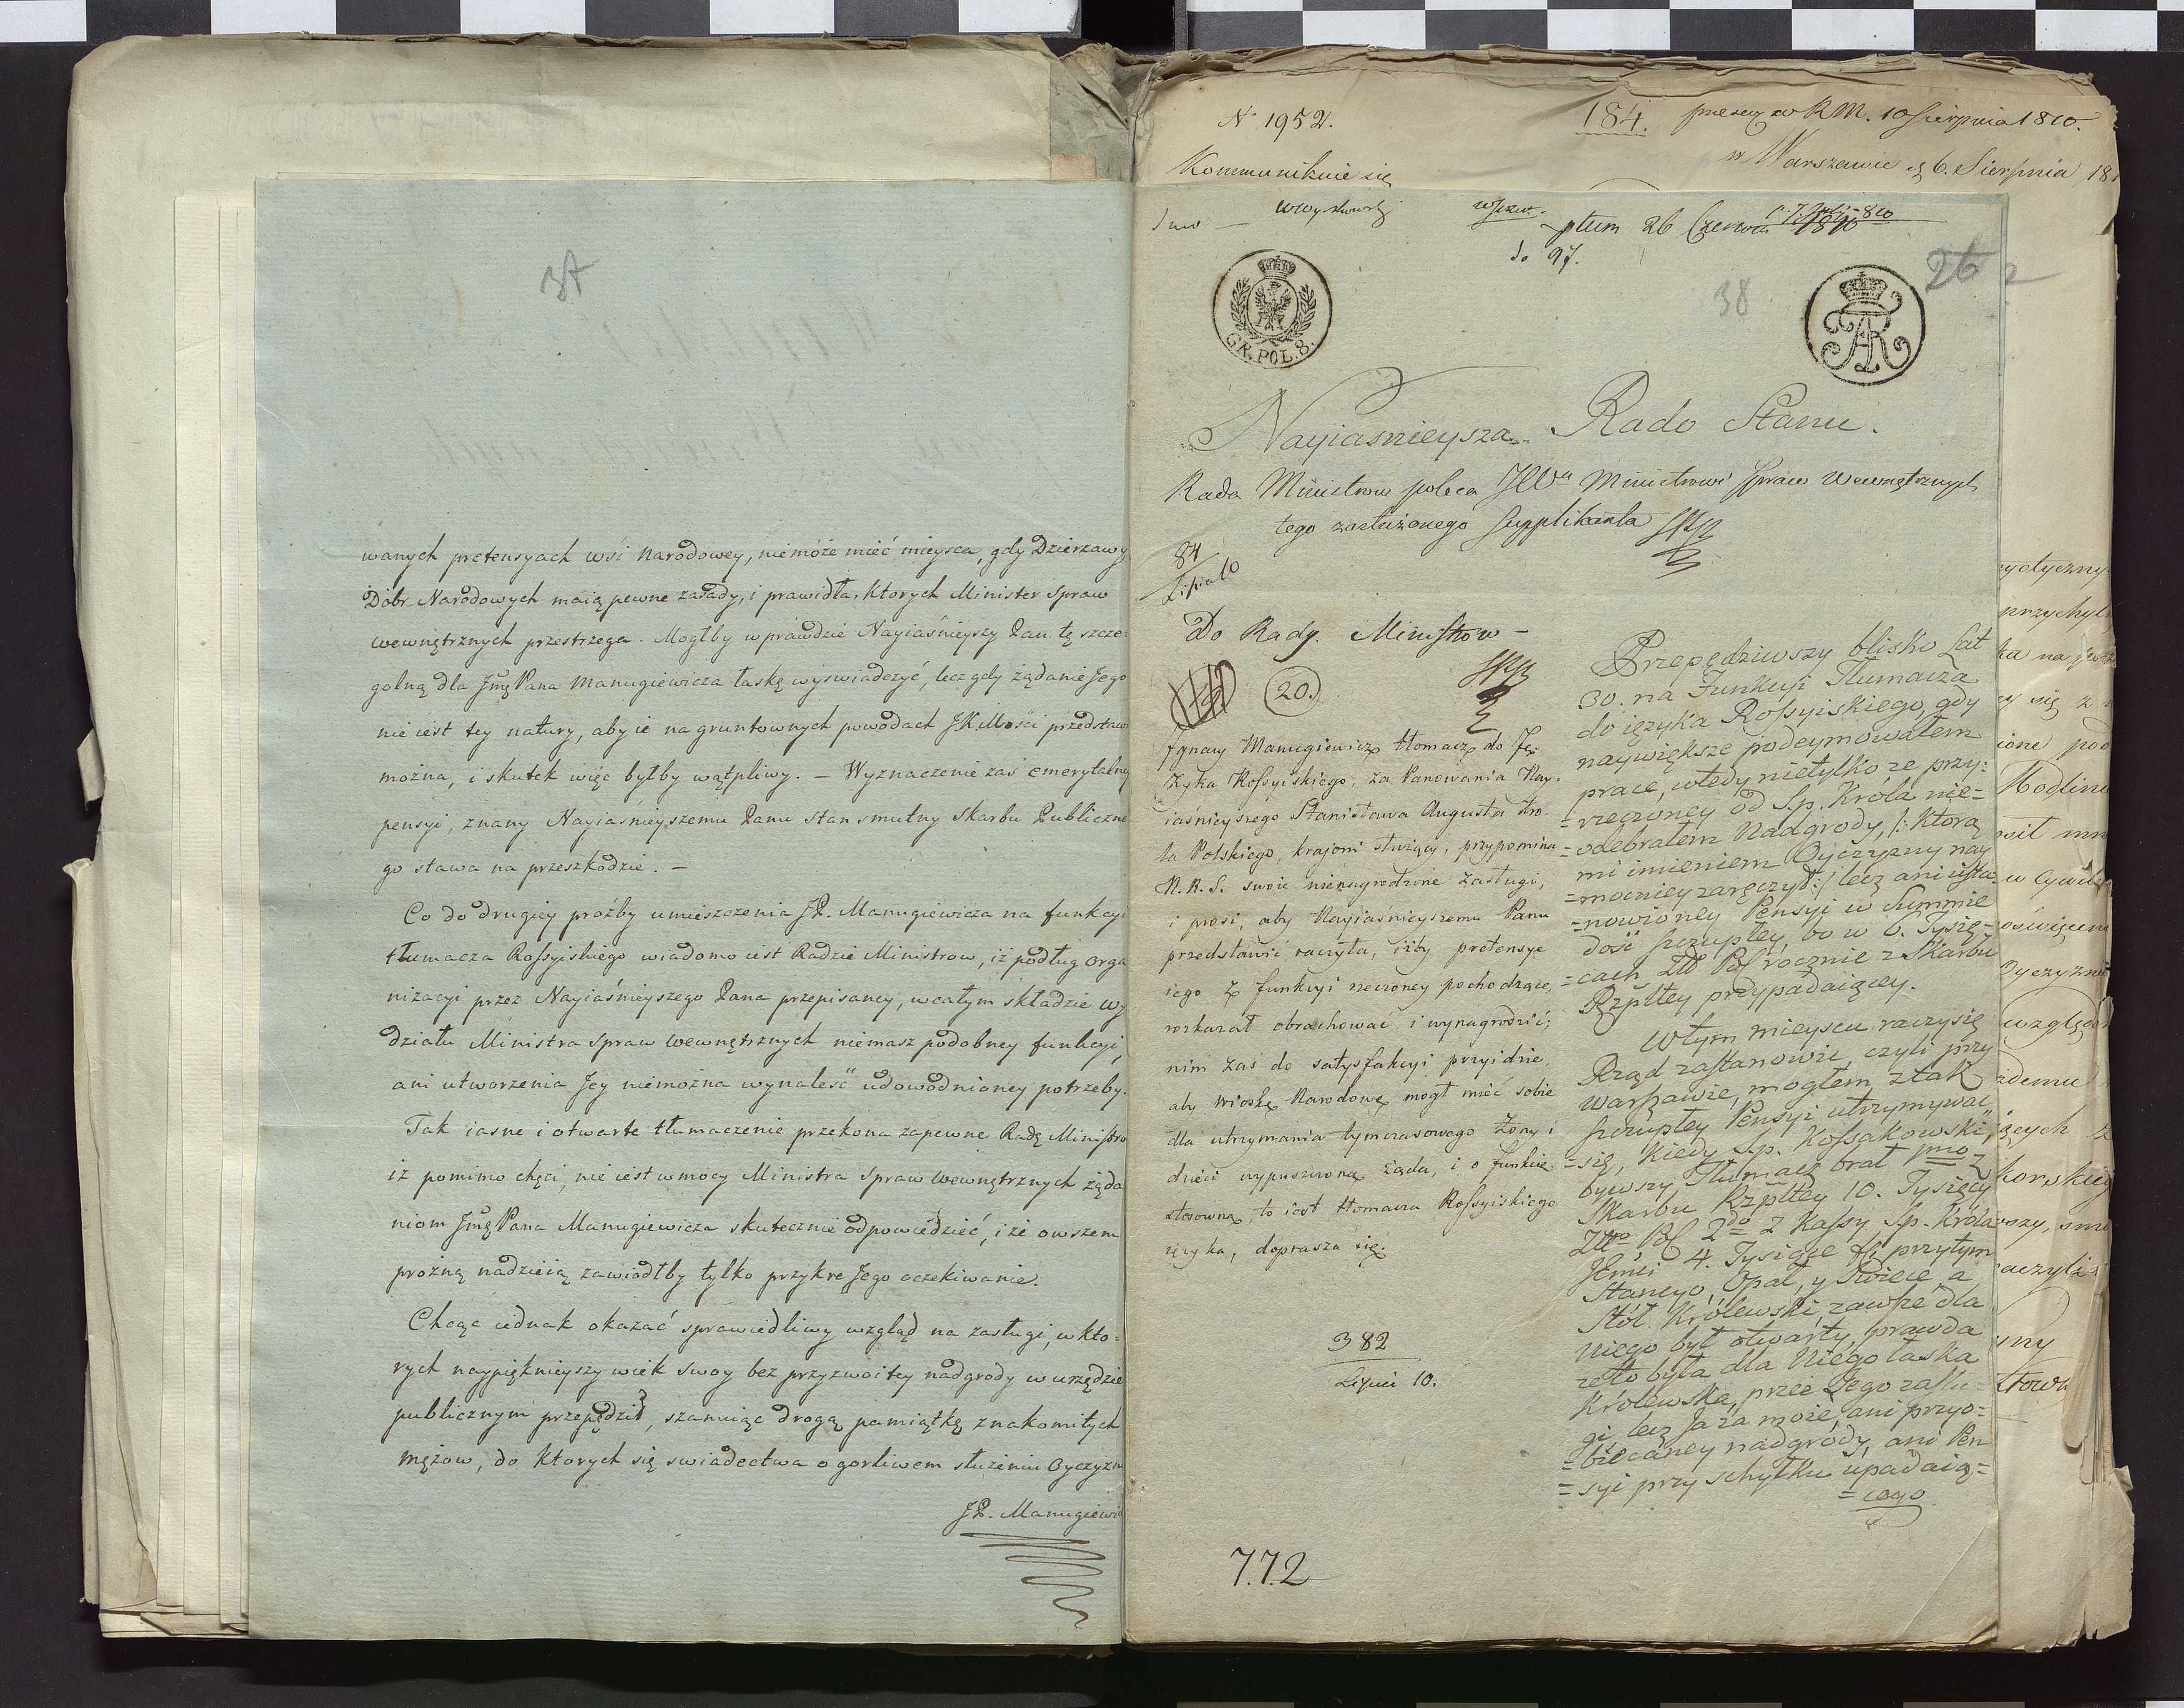 37
wanych pretensyach wsi Narodowey, niemoże mieć mieysca, gdy Dzierzawy
Dobr Narodowych maią pewne zasady, i prawidła, ktorych Minister Spraw
wewnętrznych przestrzega. Mogłby wprawdzie Nayiaśnieyszy Pan tę szcze=
golną dla Jmę Pana Manugiewicza łaskę wyswiadczyć, lecz gdy żądanie Jego
nie iest tey natury, aby ie na gruntownych powodach JKMości przedstaw
można, i skutek więc byłby wątpliwy. — Wyznaczenie zaś emerytalney
pensyi, znany Nayiaśnieyszemu Panu stan smutny Skarbu Publiczne
go stawa na przeszkodzie. —
Co do drugiey proźby umieszczenia JP. Manugiewicza na funkcyi
tłumacza Rossyiskiego wiadomo iest Radzie Ministrow, iż podług orga
nizacyi przez Nayiaśnieyszego Pana przepisaney, w całym składzie wy
działu Ministra Spraw wewnętrznych niemasz podobney funkcyi,
ani utworzenia Jey niemożna wynaleść udowodnioney potrzeby.
Tak iasne i otwarte tłumaczenie przekona zapewne Radę Ministro
iż pomimo chęci, nie iest w mocy Ministra Spraw wewnętrznych żąda
niom Jmę Pana Manugiewicza skutecznie odpowiedzieć, i że owszem
prożną nadzieią zawiodłby tylko przykre Jego oczekiwanie.
Chcąc iednak okazać sprawiedliwy wzgląd na zasługi, w kto=
rych naypięknieyszy wiek swoy bez przyzwoitey nadgrody w urzędzie
publicznym przepędził, szanuiąc drogą pamiątkę znakomitych
mężow, do ktorych się swiadectwa o gorliwem służeniu Oyczyzn
JP. Manugiewi
N 1952.
184.
w RM. 10 Sierpnia 1810.
w Warszawie d 6. Sierpnia 181
Kommunikuie się
ptum 26 Czerwca 1810
do 97.
38
26
GR. POL. 8.
AR
Nayiasnieysza Rado Stanu.
Rada Ministrow poleca JW Ministrowi Spraw Wewnętrznych
tego zasłużonego Supplikanta
84
Lipca 10
Do Rady Ministrow —
20.
Ignacy Manugiewicz tłomacz do Ję=
zyka Rossyiskiego, za Panowania Nay=
iaśnieyszego Stanisława Augusta Kro=
la Polskiego, kraiowi służący, przypomina
N. R. S. swoie nienagrodzone zasługi,
i prosi, aby Nayiaśnieyszemu Panu
przedstawić raczyła, iżby pretensye
iego z funkcyi rzeczoney pochodzące,
rozkazał obrachować i wynagrodzić;
nim zaś do satysfakcyi przyidzie,
aby Wioskę Narodową mogł mieć sobie
dla utrzymania tymczasowego Żony i
dzieci wypuszczoną żąda, i o funkcię
stosowną, to iest tłomacza Rossyiskiego
ięzyka, doprasza się.
382
Lipca 10.
7.7.2
Przepędziwszy blisko Lat
30. na Funkcyi Tłumacza
do ięzyka Rossyiskiego, gdy
naywiększe podeymowałem
prace, wtedy nietylko ze przy=
=rzeczoney od Sp. Króla nie=
=odebrałem Nadgrody, /: którą
mi imieniem Oyczyzny nay
=mocniey zaręczył :/ lecz ani usta=
=nowioney Pensyi w Summie
dość szczupłey, bo w 6. Tysię=
=cach Złł Pol rocznie z Skarbu
Rzpltey przypadaiącey.
W tym mieyscu raczy się
Rząd zastanowić, czyli przy
warszawie, mogłem z tak
szczupłey Pensyi utrzymywać
=się, kiedy Sp. Kossakowski
bywszy Tłumacz brał 1mo z
Skarbu Rzpltey 10. Tysięcy
Złło Pol 2do z Kassy Sp. Króla
Jmci 4. Tysiące # przytym
Stancyo, Opał, y Świece, a
Stół Królewski, zawsze dla
niego był otwarty, prawda
że to była dla Niego łaska
Królewska, przez Jego zasłu=
gi, lecz Ja za moie, ani przyo=
=biecaney nadgrody, ani Pen
=syi przy schyłku upadaią=
=cego